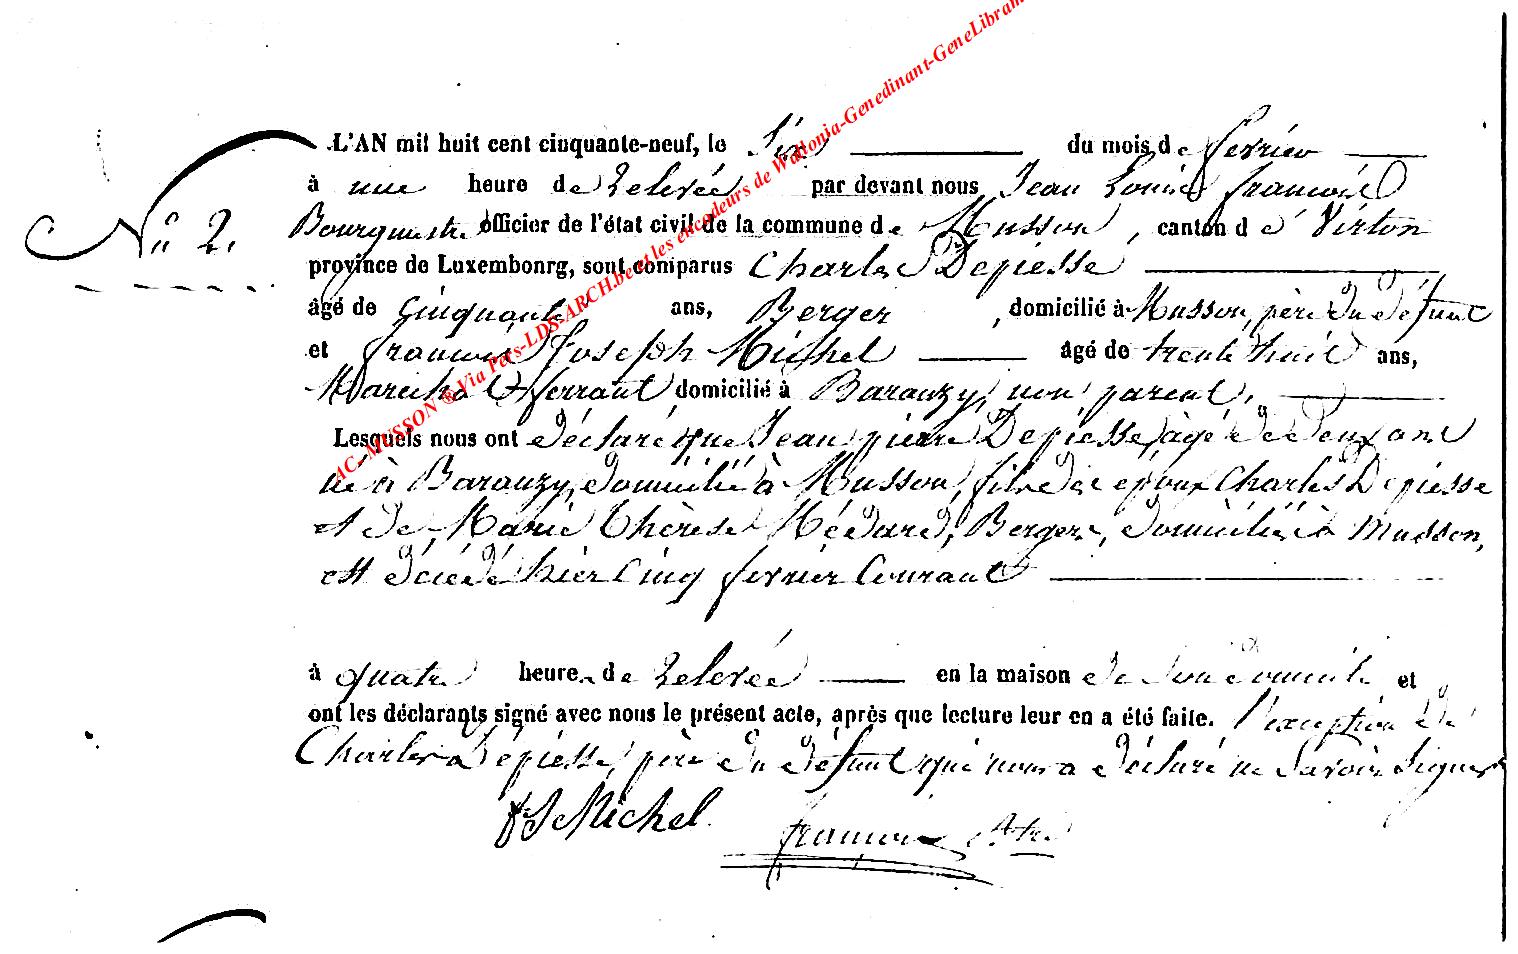 L'AN mil huit cent cinquante-neuf, le Six du mois de fevrier
à une heure de relevée par devant nous Jean Louis francois
N° 2. Bourgmestre officier de l'état civil de la commune de Musson, canton de Virton
province de Luxembourg, sont comparus Charles Depiesse
âgé de Cinquante ans, Berger, domicilié à Musson, père du défunt
et francois Joseph Michel âgé de trente huit ans,
Marechal ferrant, domicilié à Baranzy, non parent,
Lesquels nous ont déclaré que Jean pierre Depiesse, âgé de deux ans
né à Baranzy, domicilié à Musson, fils de epoux Charles Depiesse
et de Marie Thérèse Médard, Berger, domicilié à Musson,
est décédé hier Cinq fevrier Courant
à quatre heures de relevée en la maison de son domicile et
ont les déclarants signé avec nous le présent acte, après que lecture leur en a été faite. l'exception de
Charles Depiesse, père du défunt qui nous a déclaré ne Savoir Signer
f J Michel francois
AC-MUSSON ® Via Pers-LDS-ARCH.be et les encodeurs de Wallonia-Genedinant-GeneLibram